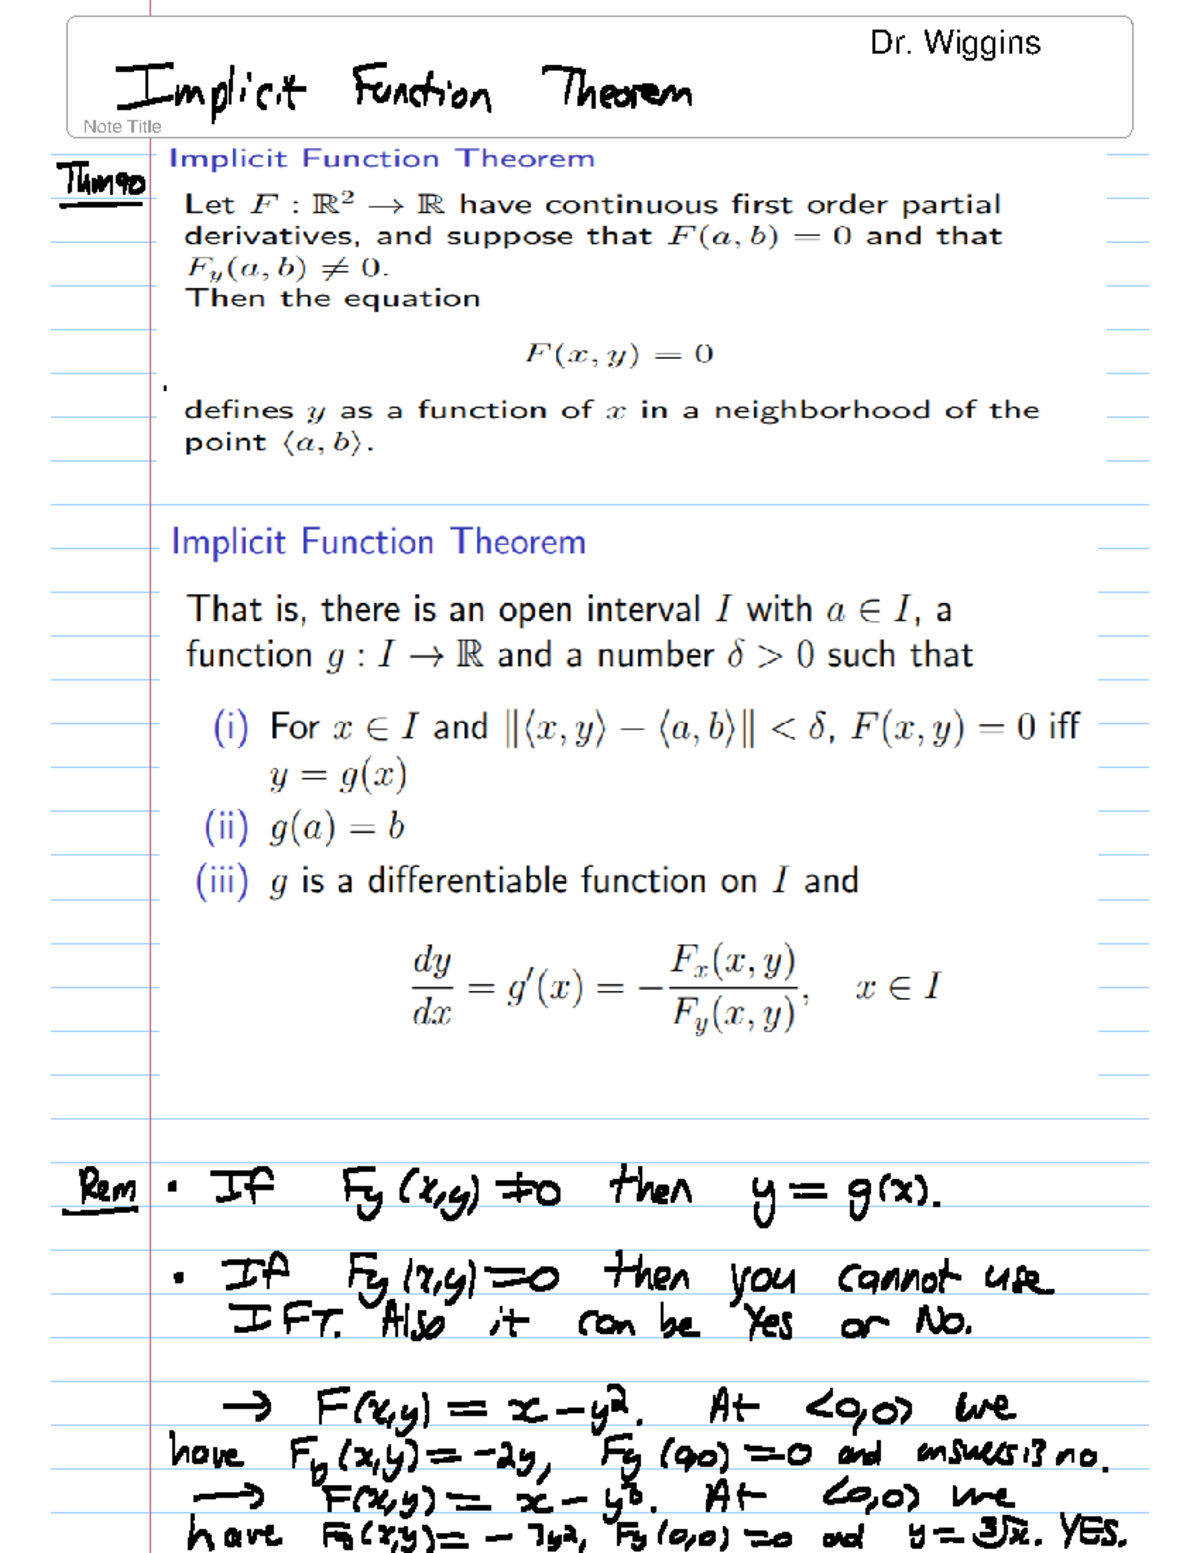 Dr. Wiggins
Implicit Function Theorem
Note Title
Implicit Function Theorem
Thm 90
Let F : ℝ² → ℝ have continuous first order partial
derivatives, and suppose that F(a, b) = 0 and that
F_y(a, b) ≠ 0.
Then the equation
F(x, y) = 0
defines y as a function of x in a neighborhood of the
point ⟨a, b⟩.
Implicit Function Theorem
That is, there is an open interval I with a ∈ I, a
function g : I → ℝ and a number δ > 0 such that
(i) For x ∈ I and ‖⟨x, y⟩ − ⟨a, b⟩‖ < δ, F(x, y) = 0 iff
y = g(x)
(ii) g(a) = b
(iii) g is a differentiable function on I and
dy/dx = g′(x) = −F_x(x, y)/F_y(x, y), x ∈ I
Rem • If F_y(x,y) ≠ 0 then y = g(x).
• If F_y(x,y) = 0 then you cannot use
IFT. Also it can be Yes or No.
→ F(x,y) = x − y². At <0,0> we
have F_y(x,y) = −2y, F_y(0,0) = 0 and answer is no.
→ F(x,y) = x − y³. At <0,0> we
have F_y(x,y) = − y², F_y(0,0) = 0 and y = ³√x. YES.